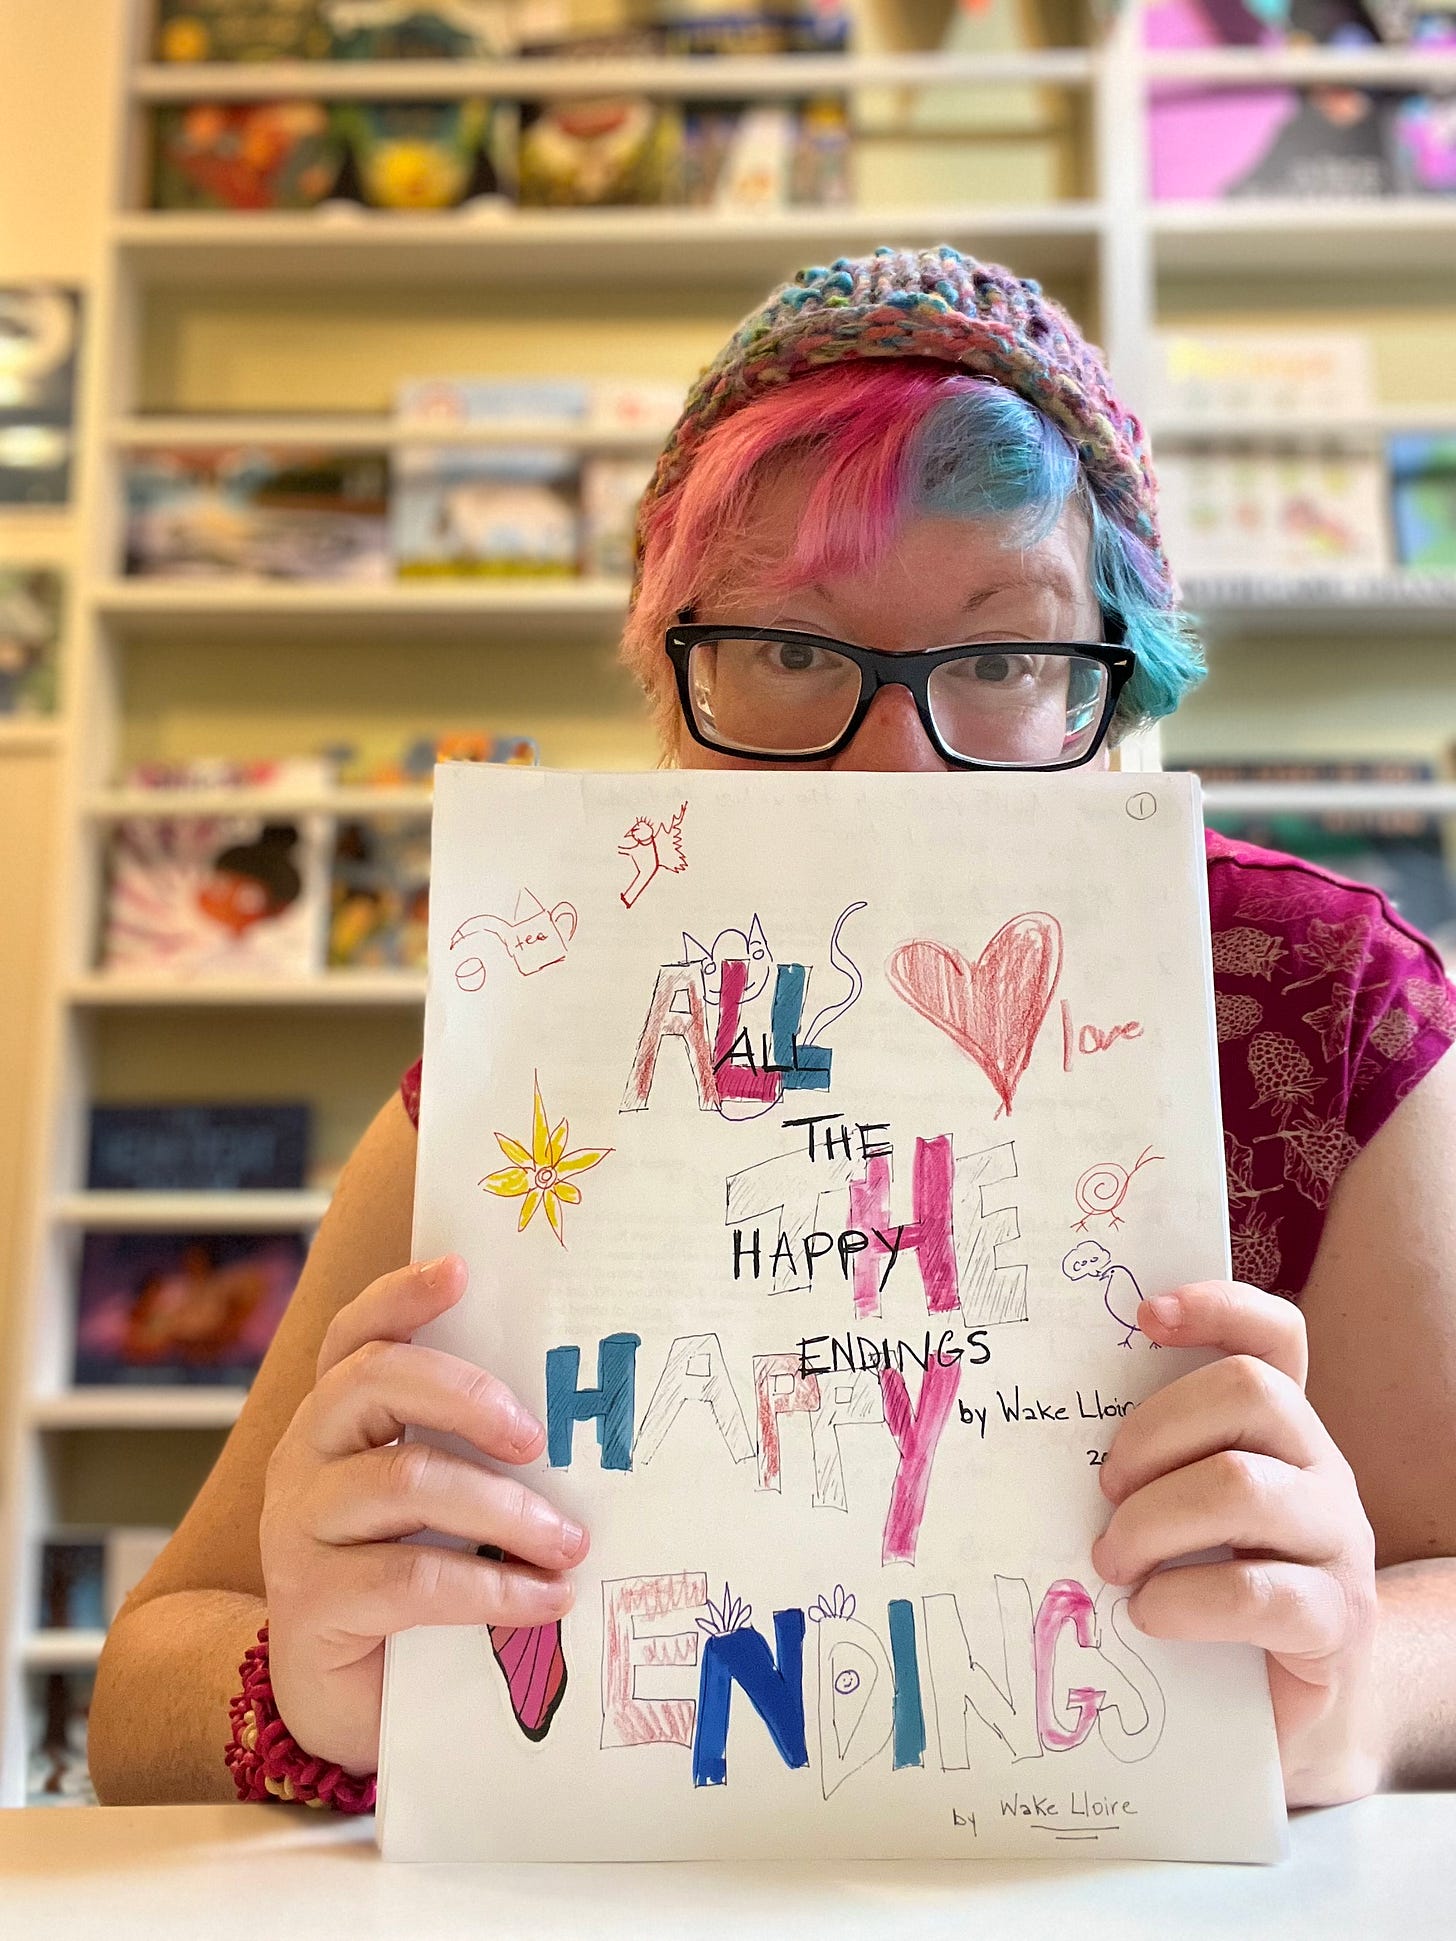 1
tea
ALL
ALL
love
THE
THE
HAPPY
coo
ENDINGS
HAPPY
by Wake
ENDINGS
by Wake Lloire